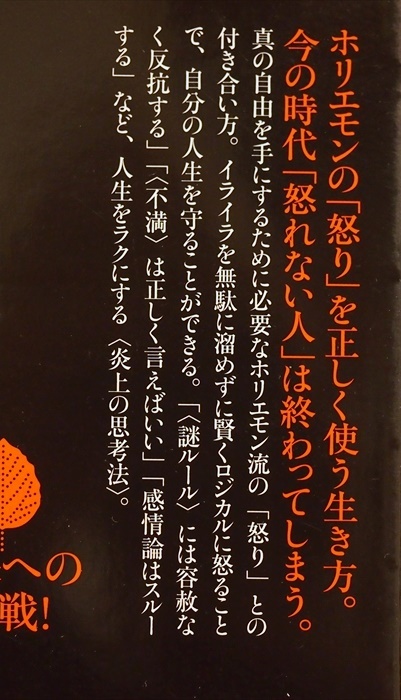 ホリエモンの「怒り」を正しく使う生き方。
今の時代「怒れない人」は終わってしまう。
真の自由を手にするために必要なホリエモン流の「怒り」との
付き合い方。イライラを無駄に溜めずに賢くロジカルに怒ること
で、自分の人生を守ることができる。「〈謎ルール〉には容赦な
く反抗する」「〈不満〉は正しく言えばいい」「感情論はスルー
する」など、人生をラクにする〈炎上の思考法〉。
への
戦!